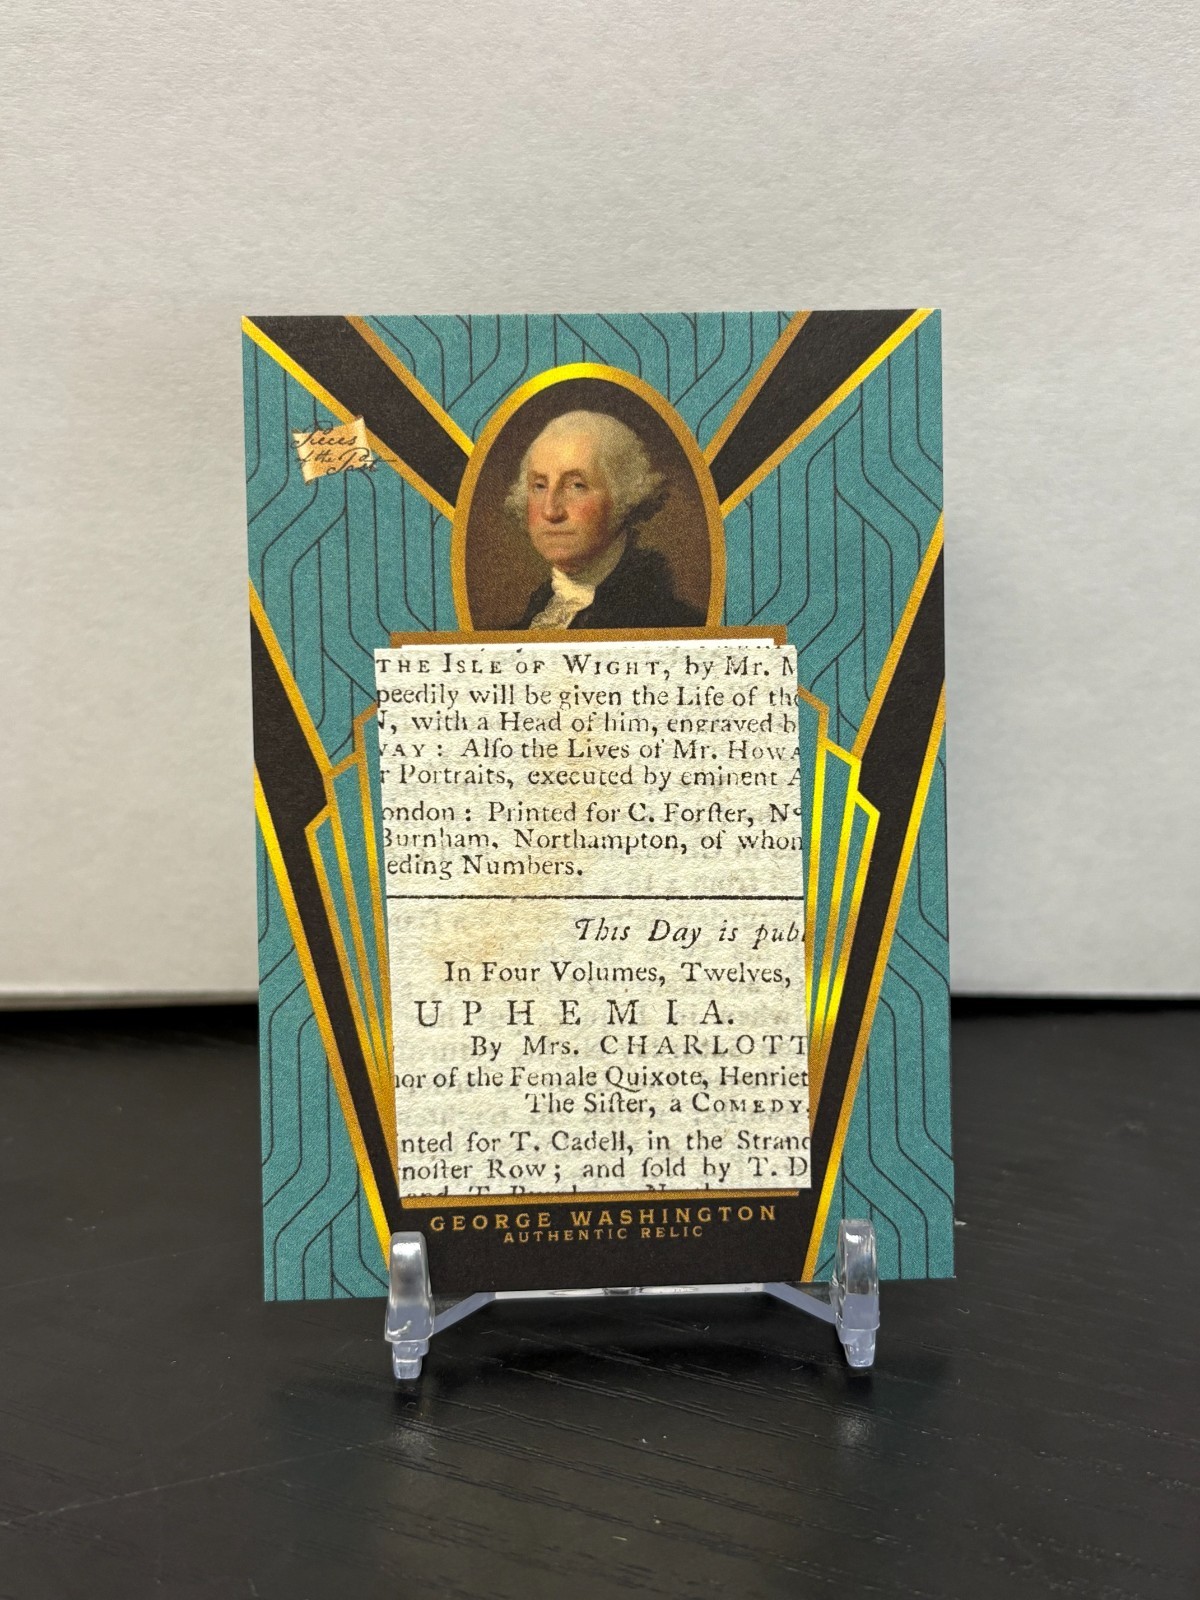 Pieces
of the Past
THE ISLE OF WIGHT, by Mr. M
peedily will be given the Life of the
N, with a Head of him, engraved b
WAY: Alſo the Lives of Mr. HOWA
r Portraits, executed by eminent A
ondon: Printed for C. Forſter, Nº
Burnham, Northampton, of whom
eding Numbers.
This Day is publ
In Four Volumes, Twelves,
UPHEMIA.
By Mrs. CHARLOTT
hor of the Female Quixote, Henriet
The Siſter, a COMEDY.
nted for T. Cadell, in the Strand
noſter Row; and ſold by T. D
and T.
GEORGE WASHINGTON
AUTHENTIC RELIC